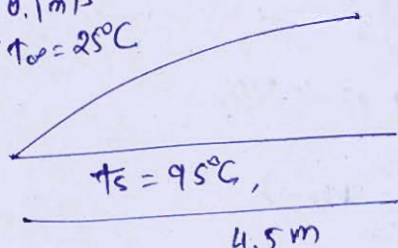 0.1m/s
T∞ = 25°C
Ts = 95°C,
4.5 m